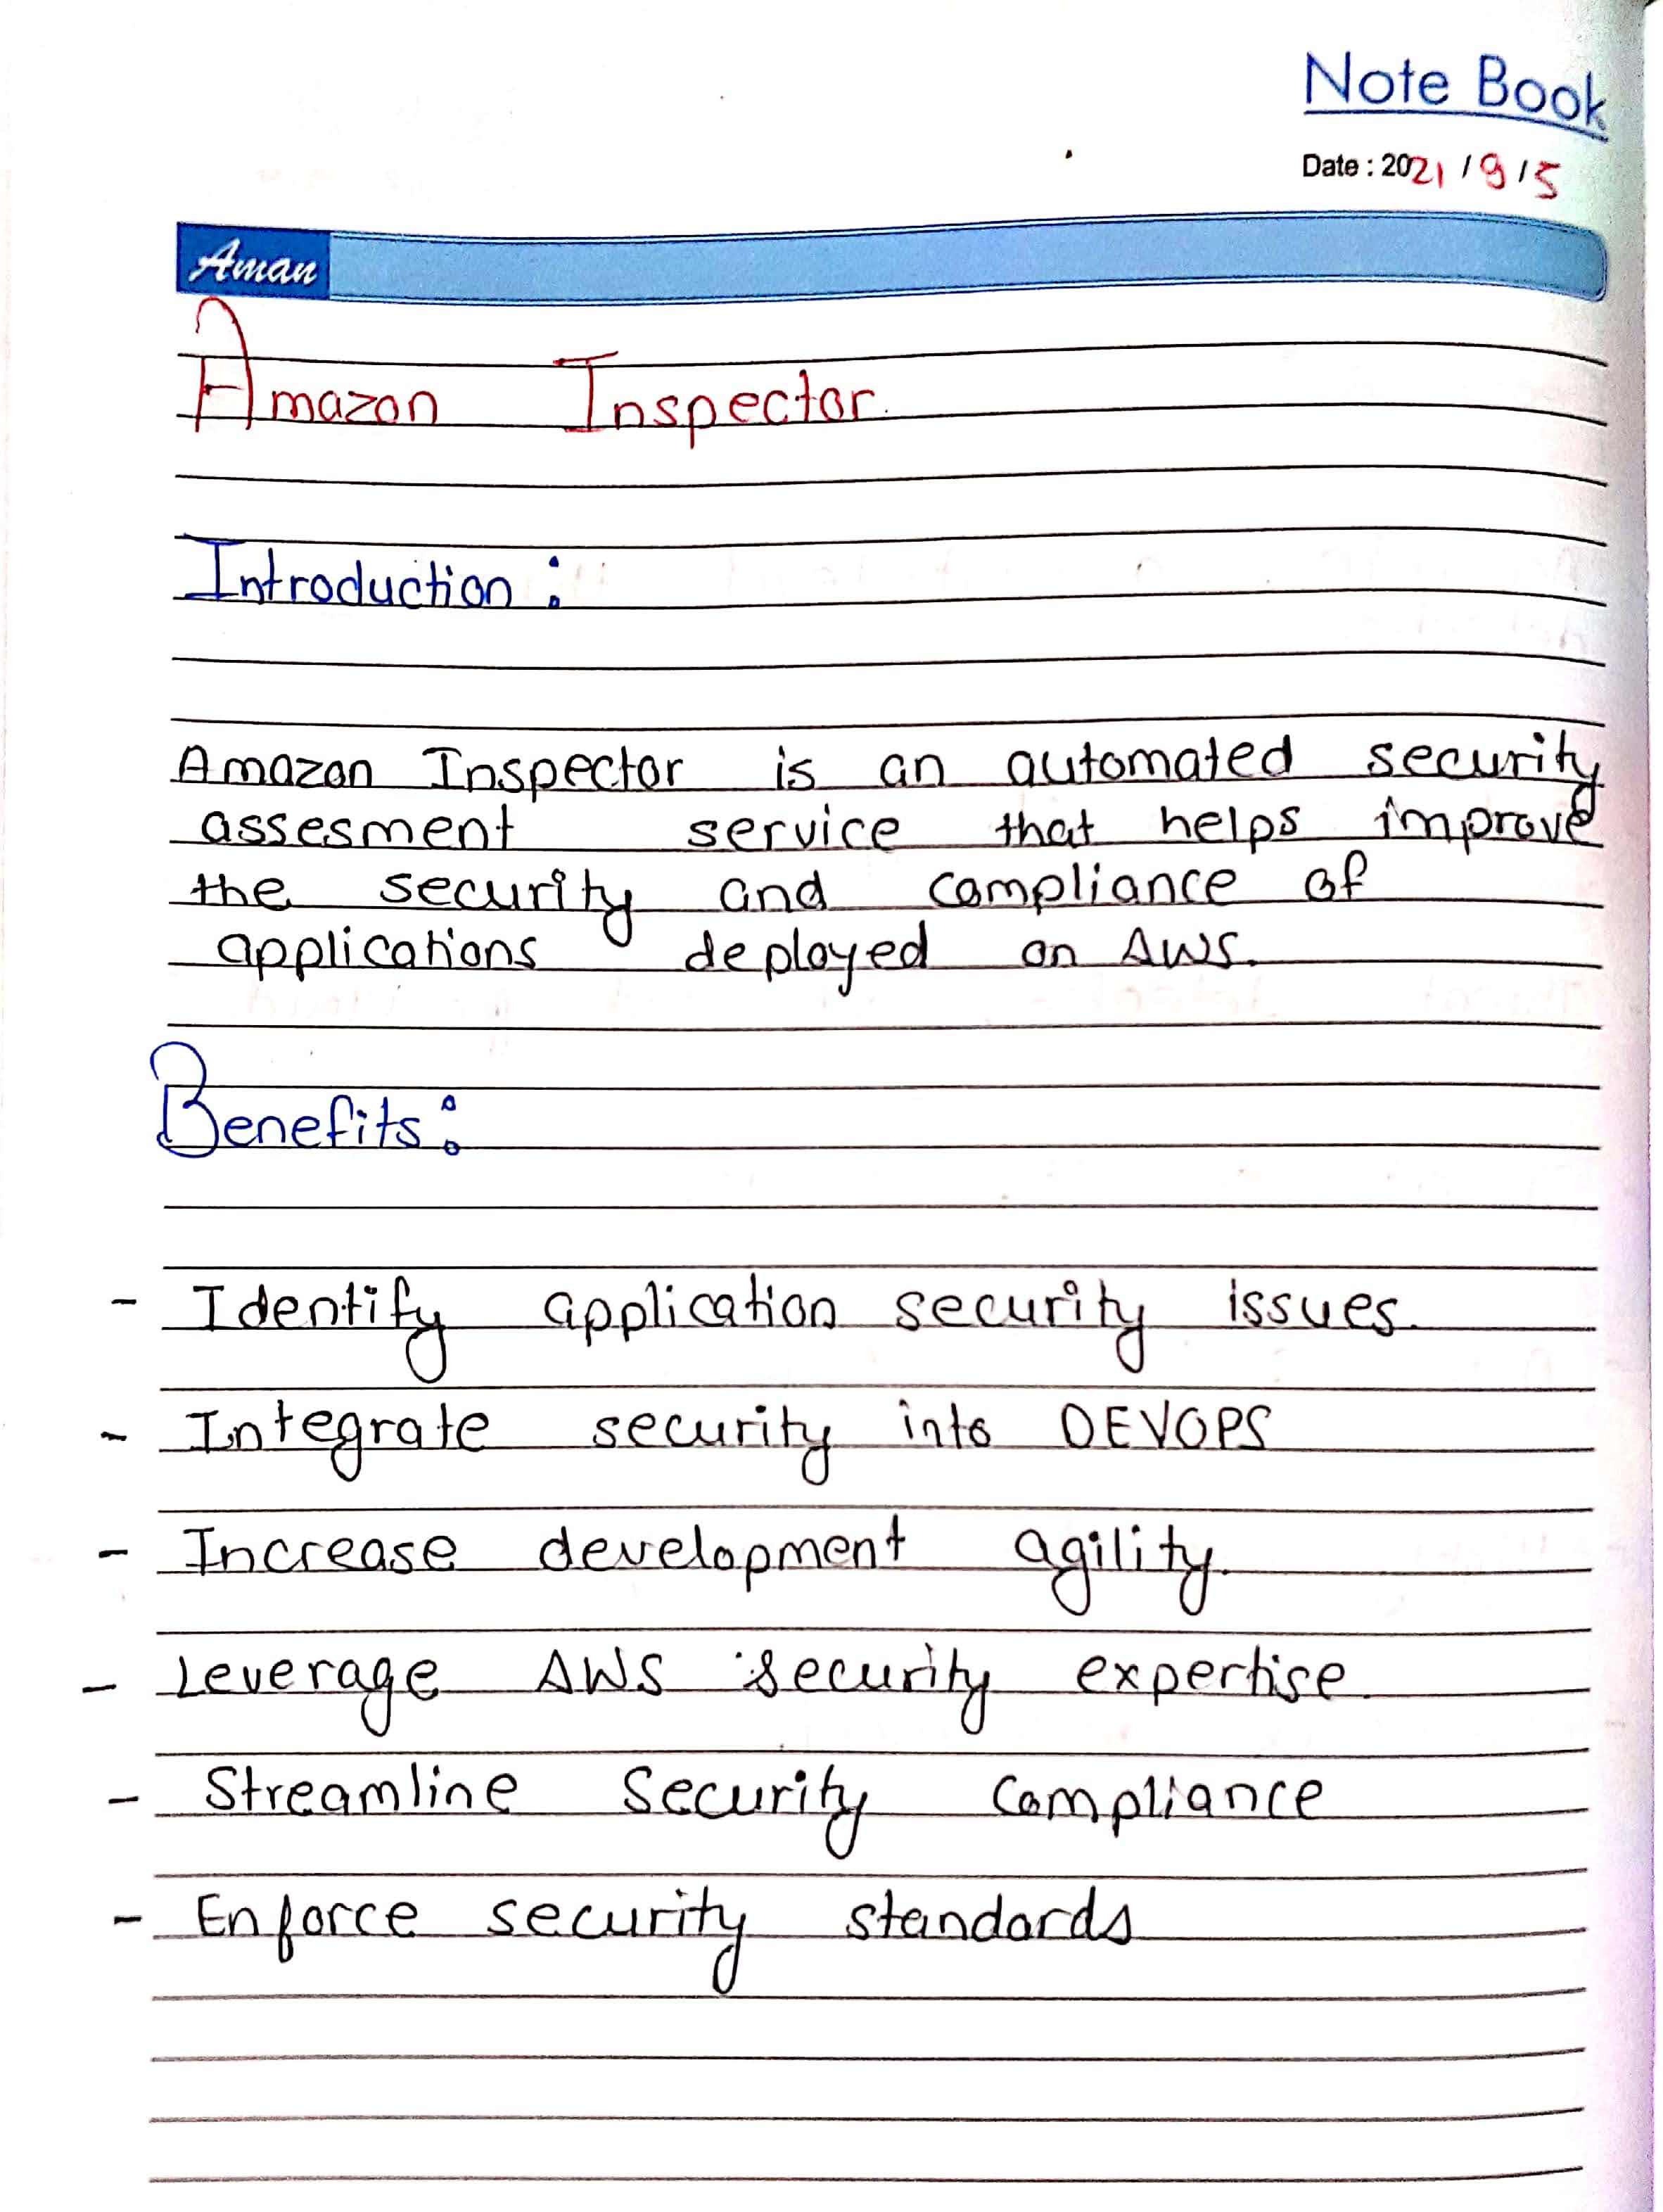 Note Book
Date : 2021 / 9 / 5
Aman
Amazon Inspector
Introduction :
Amazon Inspector is an automated security
assesment service that helps improve
the security and compliance of
applications deployed on AWS.
Benefits :
- Identify application security issues.
- Integrate security into DEVOPS
- Increase development agility.
- Leverage AWS security expertise.
- Streamline Security Compliance
- Enforce security standards